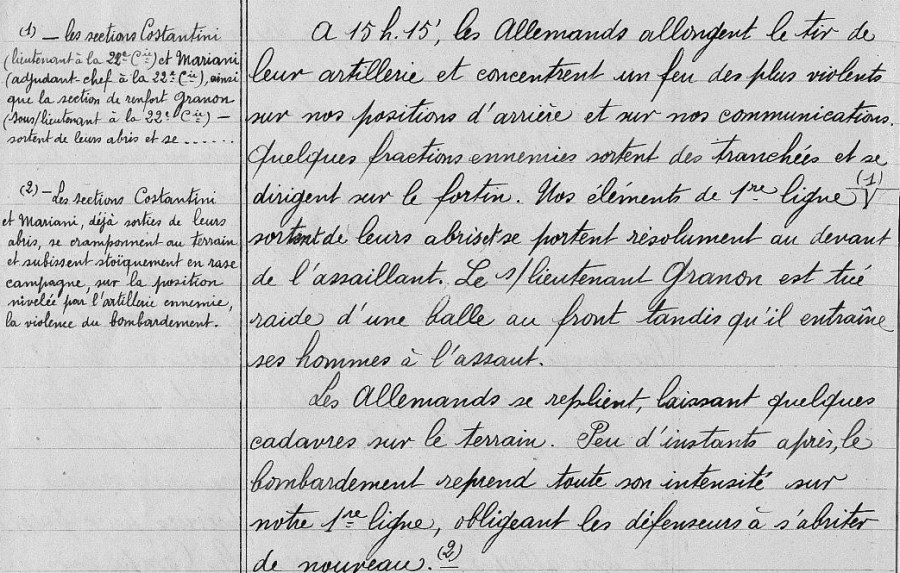 (1) — les sections Costantini
(lieutenant à la 22e Cie) et Mariani
(adjudant-chef à la 22e Cie), ainsi
que la section de renfort Granon
(sous/lieutenant à la 22e Cie) —
sortent de leurs abris et se ......
(2) — Les sections Costantini
et Mariani, déjà sorties de leurs
abris, se cramponnent au terrain
et subissent stoïquement en rase
campagne, sur la position
nivelée par l'artillerie ennemie,
la violence du bombardement.
A 15 h. 15', les Allemands allongent le tir de
leur artillerie et concentrent un feu des plus violents
sur nos positions d'arrière et sur nos communications.
Quelques fractions ennemies sortent des tranchées et se
dirigent sur le fortin. Nos éléments de 1re ligne (1)
sortent de leurs abris et se portent résolument au devant
de l'assaillant. Le s/lieutenant Granon est tué
raide d'une balle au front tandis qu'il entraîne
ses hommes à l'assaut.
Les Allemands se replient, laissant quelques
cadavres sur le terrain. Peu d'instants après, le
bombardement reprend toute son intensité sur
notre 1re ligne, obligeant les défenseurs à s'abriter
de nouveau. (2)